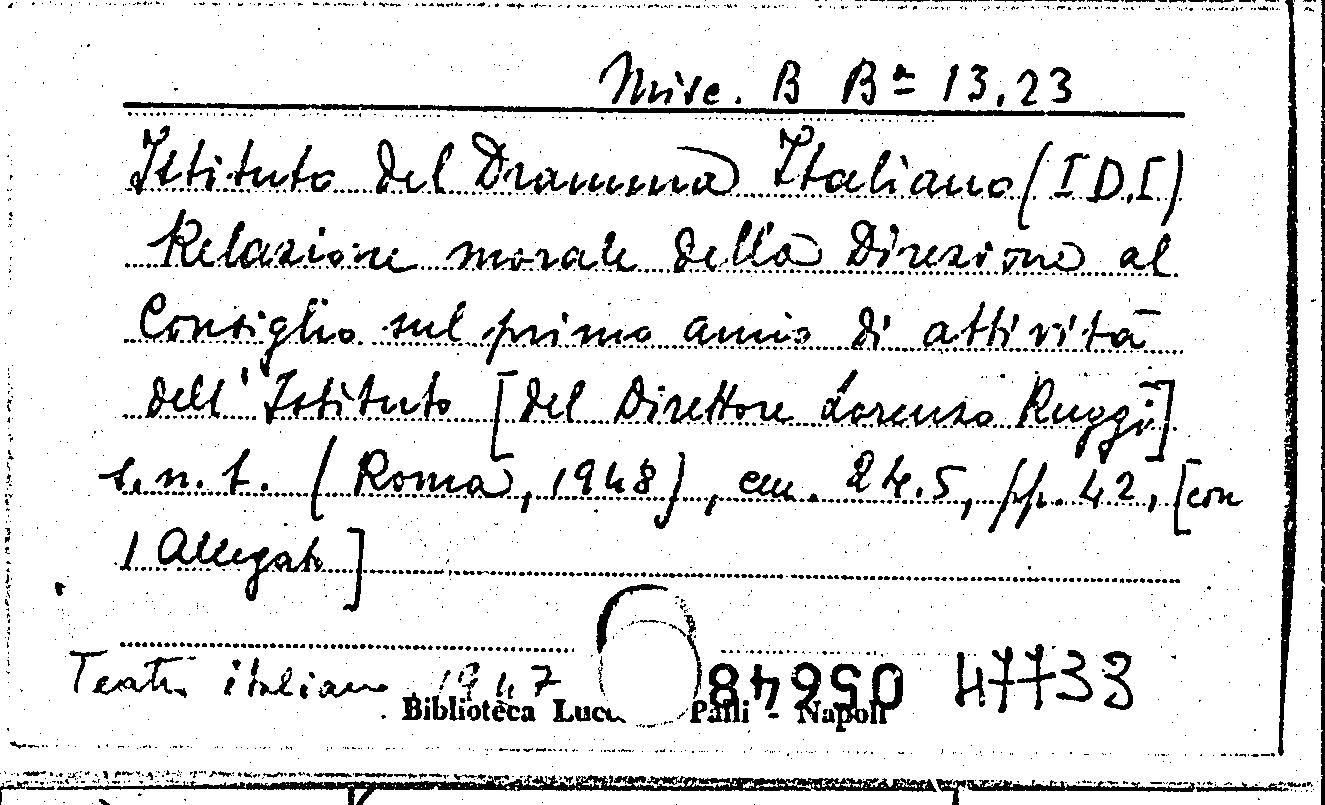 Misc. B Bª 13.23
Istituto del Dramma Italiano (I D.I)
Relazione morale della Direzione al
Consiglio sul primo anno di attività
dell' Istituto [del Direttore Lorenzo Ruggi]
s.n.t. (Roma, 1948), cm. 24.5, pp. 42, [con
1 Allegato]
Teatro italiano 1947
05648 47733
Biblioteca Lucc Palli - Napoli